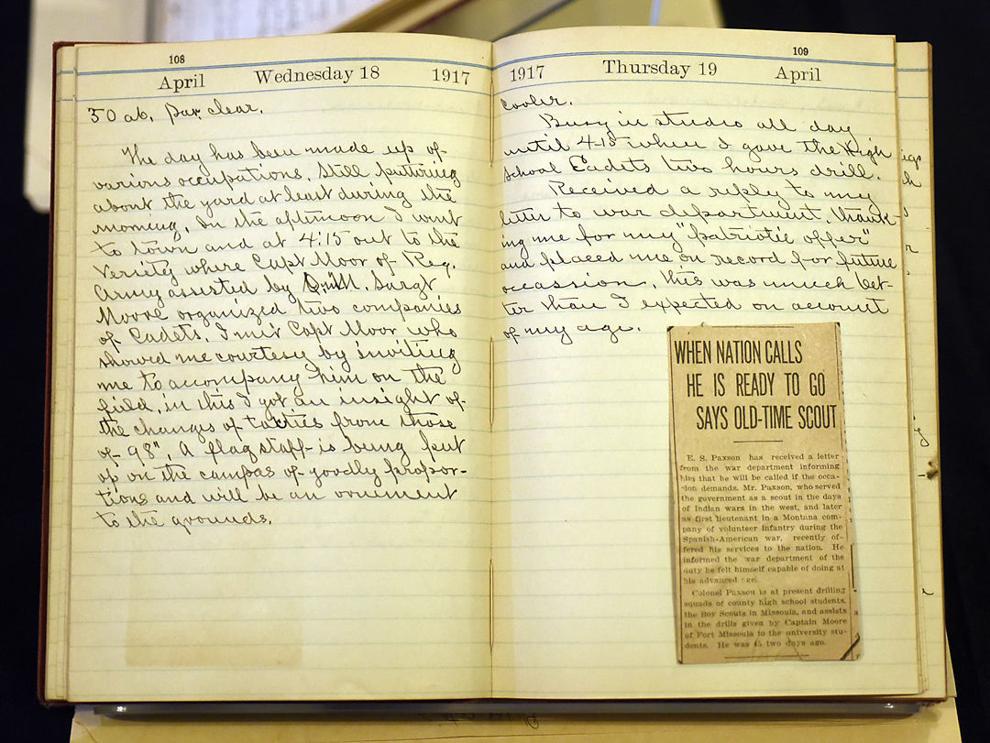 108
April Wednesday 18 1917
50 ab. par. clear.
The day has been made up of
various occupations. Still puttering
about the yard at least during the
morning. In the afternoon I went
to town and at 4:15 out to the
Versity where Capt Moor of Reg.
Army assisted by Sargt
Moore organized two companies
of Cadets. I met Capt Moor who
showed me courtesy by inviting
me to accompany him on the
field, in this I got an insight of
the changes of tactics from those
of 98". A flagstaff is being put
up on the campas of goodly propor-
tions and will be an ornument
to the grounds.
109
1917 Thursday 19 April
Cooler.
Busy in studio all day
until 4-15 when I gave the High
School Cadets two hours drill.
Received a reply to my
letter to war department. thank
ing me for my "patriotic offer"
and placed me on record for future
occassion. this was much bet-
ter than I expected on account
of my age.
WHEN NATION CALLS
HE IS READY TO GO
SAYS OLD-TIME SCOUT
E. S. Paxson has received a letter
from the war department informing
him that he will be called if the occa-
sion demands. Mr. Paxson, who served
the government as a scout in the days
of Indian wars in the west, and later
as first lieutenant in a Montana com-
pany of volunteer infantry during the
Spanish-American war, recently of-
fered his services to the nation. He
informed the war department of the
duty he felt himself capable of doing at
his advanced age.
Colonel Paxson is at present drilling
squads of county high school students,
the Boy Scouts in Missoula, and assists
in the drills given by Captain Moore
of Fort Missoula to the university stu-
dents. He was two days ago.